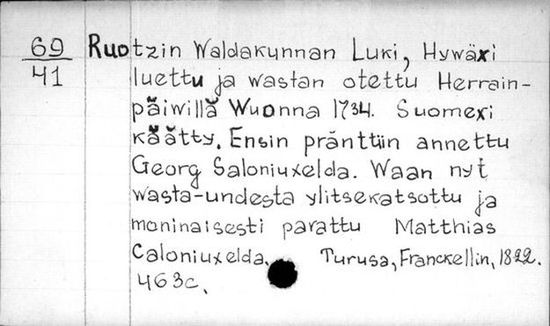 69
41
Ruotzin Waldakunnan Luki, Hywäxi
luettu ja wastan otettu Herrain-
päiwillä Wuonna 1734. Suomexi
käätty. Ensin pränttiin annettu
Georg Saloniuxelda. Waan nyt
wasta-undesta ylitsekatsottu ja
moninaisesti parattu Matthias
Caloniuxelda. Turusa, Franckellin, 1822.
463c.